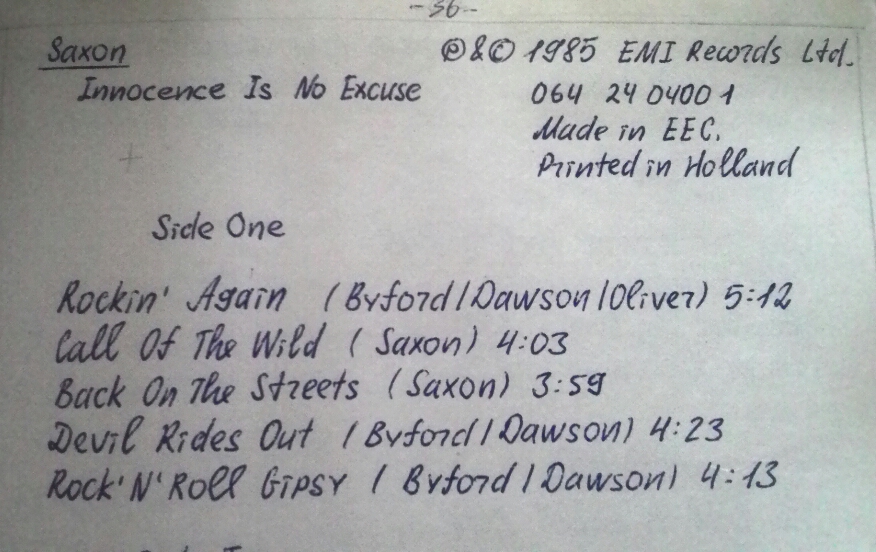 -36-
Saxon ℗&© 1985 EMI Records Ltd.
Innocence Is No Excuse 064 24 0400 1
Made in EEC.
Printed in Holland
Side One
Rockin' Again (Byford/Dawson/Oliver) 5:12
Call Of The Wild (Saxon) 4:03
Back On The Streets (Saxon) 3:59
Devil Rides Out (Byford/Dawson) 4:23
Rock'N'Roll Gipsy (Byford/Dawson) 4:13